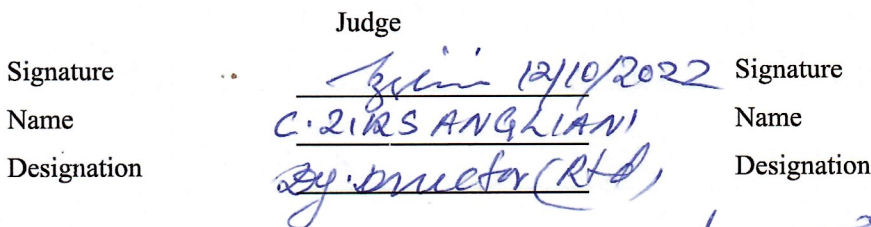 Judge
Signature 12/10/2022 Signature
Name C. ZIRSANGLIANI Name
Designation Dy. Director (Rtd) Designation